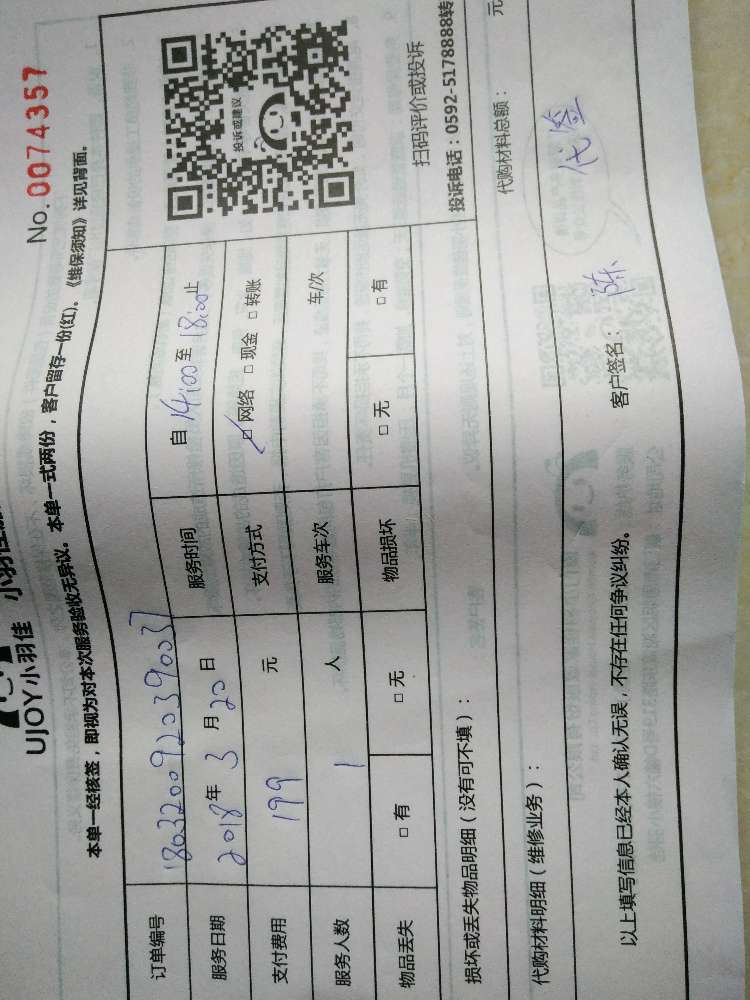 UJOY小羽佳 小羽佳
No. 0074357
本单一经核签，即视为对本次服务验收无异议。本单一式两份，客户留存一份(红)。《维保须知》详见背面。
订单编号 1803200920390037
服务日期 2018年 3 月 20 日 服务时间 自 14:00 至 18:00 止
支付费用 199 元 支付方式 □ 网络 □ 现金 □ 转账
服务人数 1 人 服务车次 车/次
物品丢失 □ 有 □ 无 物品损坏 □ 无 □ 有
投诉或建议
扫码评价或投诉
投诉电话：0592-5178888转
损坏或丢失物品明细（没有可不填）：
代购材料明细（维修业务）： 代购材料总额： 元
以上填写信息已经本人确认无误，不存在任何争议纠纷。 客户签名： 陈 代签